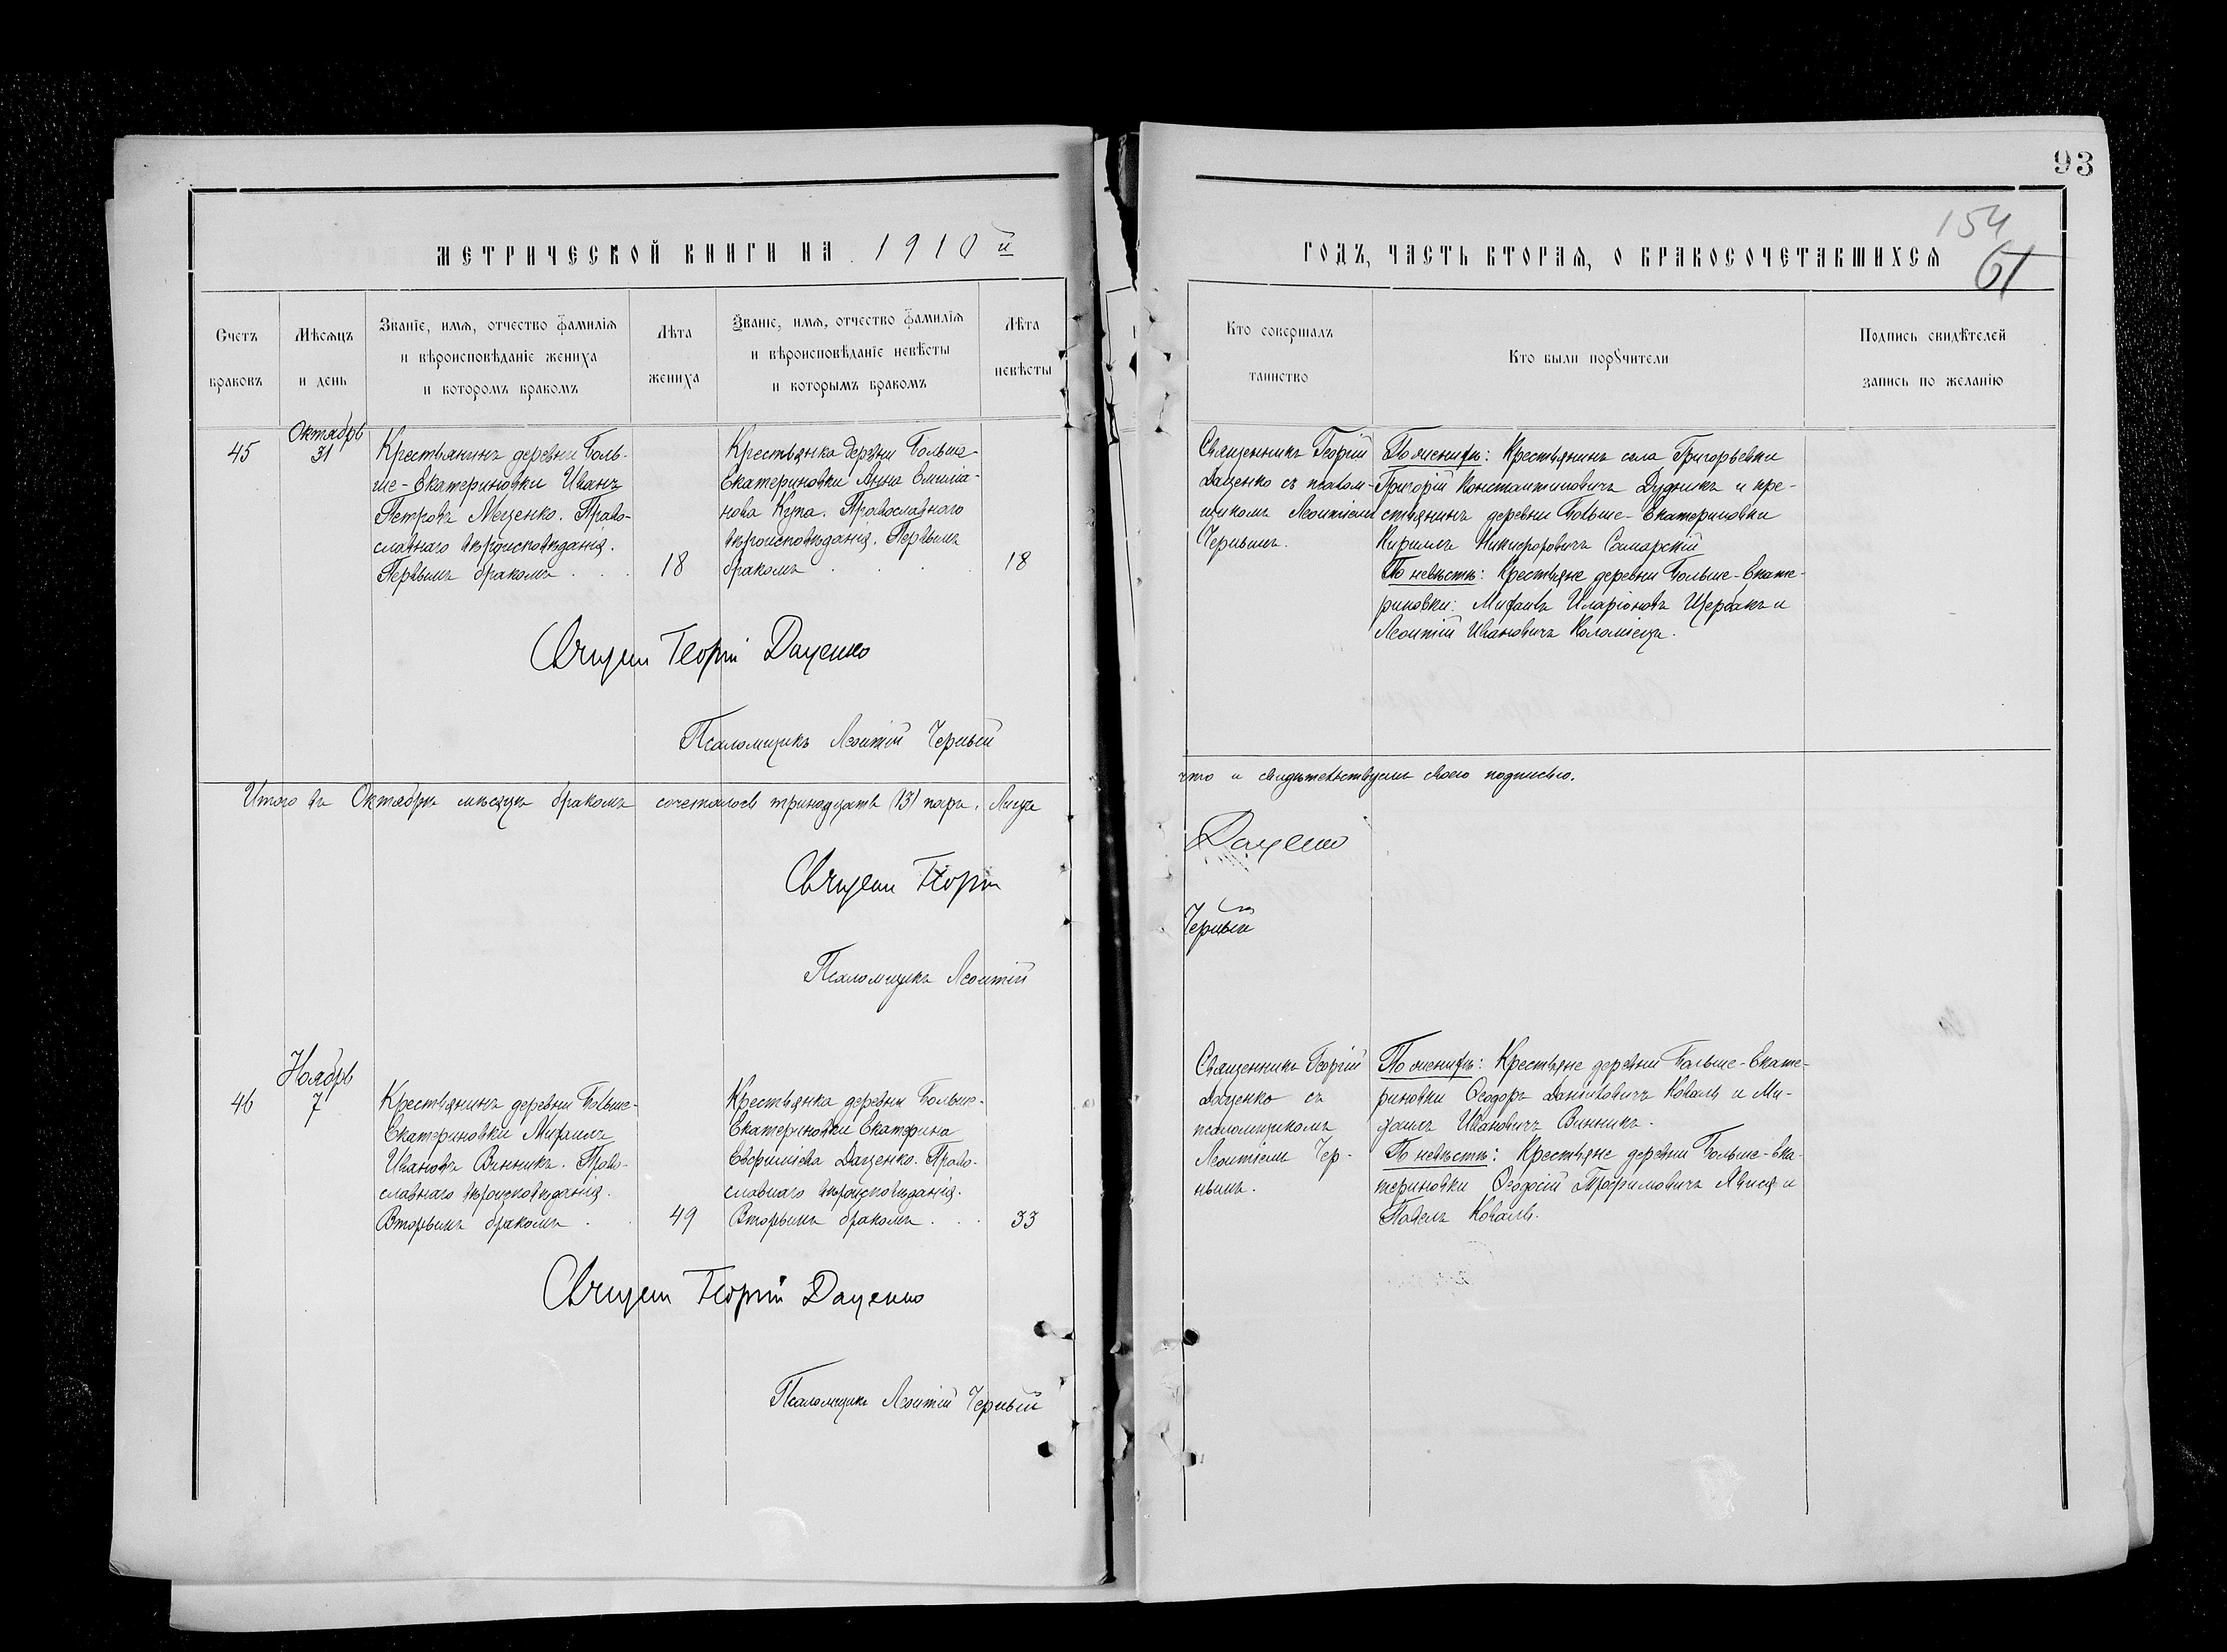 93
154
61
МЕТРИЧЕСКОЙ КНИГИ НА 1910й
ГОДЪ, ЧАСТЬ ВТОРАЯ, О БРАКОСОЧЕТАВШИХСЯ
Счетъ браковъ
Мѣсяцъ и день
Званіе, имя, отчество фамилія
и вѣроисповѣданіе жениха
и которомъ бракомъ
Лѣта жениха
Званіе, имя, отчество фамилія
и вѣроисповѣданіе невѣсты
и которымъ бракомъ
Лѣта невѣсты
Кто совершалъ
таинство
Кто были поручители
Подпись свидѣтелей
запись по желанію
45
Октябрь
31
Крестьянинъ деревни Боль-
ше-Екатериновки Иванъ
Петровъ Меценко. Право-
славнаго вѣроисповѣданія.
Первымъ бракомъ . . .
18
Крестьянка деревни Больше-
Екатериновки Анна Емиліа-
нова Купа. Православнаго
вѣроисповѣданія. Первымъ
бракомъ . . . .
18
Священникъ Георгій
Даценко съ псалом-
щикомъ Леонтіемъ
Чернымъ.
По женихѣ: Крестьянинъ села Григорьевки
Григорій Константиновичъ Дудникъ и кре-
стьянинъ деревни Больше-Екатериновки
Кириллъ Никифоровичъ Самарскій
По невѣстѣ: Крестьяне деревни Больше-Екате-
риновки: Михаилъ Иларіоновъ Щербакъ и
Леонтій Ивановичъ Коломіецъ.
Священ Георгій Даценко
Псаломщикъ Леонтій Черный
Итого въ Октябрѣ мѣсяцѣ бракомъ сочеталось тринадцать (13) паръ.
что и свидѣтельствуемъ своею подписью.
Священ Георгій
Даценко
Псаломщикъ Леонтій
Черный
Ноябрь
46
7
Крестьянинъ деревни Больше-
Екатериновки Михаилъ
Ивановъ Винникъ. Право-
славнаго вѣроисповѣданія.
Вторымъ бракомъ . .
49
Крестьянка деревни Больше-
Екатериновки Екатерина
Евфиміева Даценко. Право-
славнаго вѣроисповѣданія.
Вторымъ бракомъ . . .
33
Священникъ Георгій
Даценко съ
псаломщикомъ
Леонтіемъ Чер-
нымъ.
По женихѣ: Крестьяне деревни Больше-Екате-
риновки Ѳеодоръ Даниловичъ Коваль и Ми-
хаилъ Ивановичъ Винникъ.
По невѣстѣ: Крестьяне деревни Больше-Ека-
териновки Ѳеодосій Трофимовичъ и
Павелъ Коваль.
Священ Георгій Даценко
Псаломщикъ Леонтій Черный